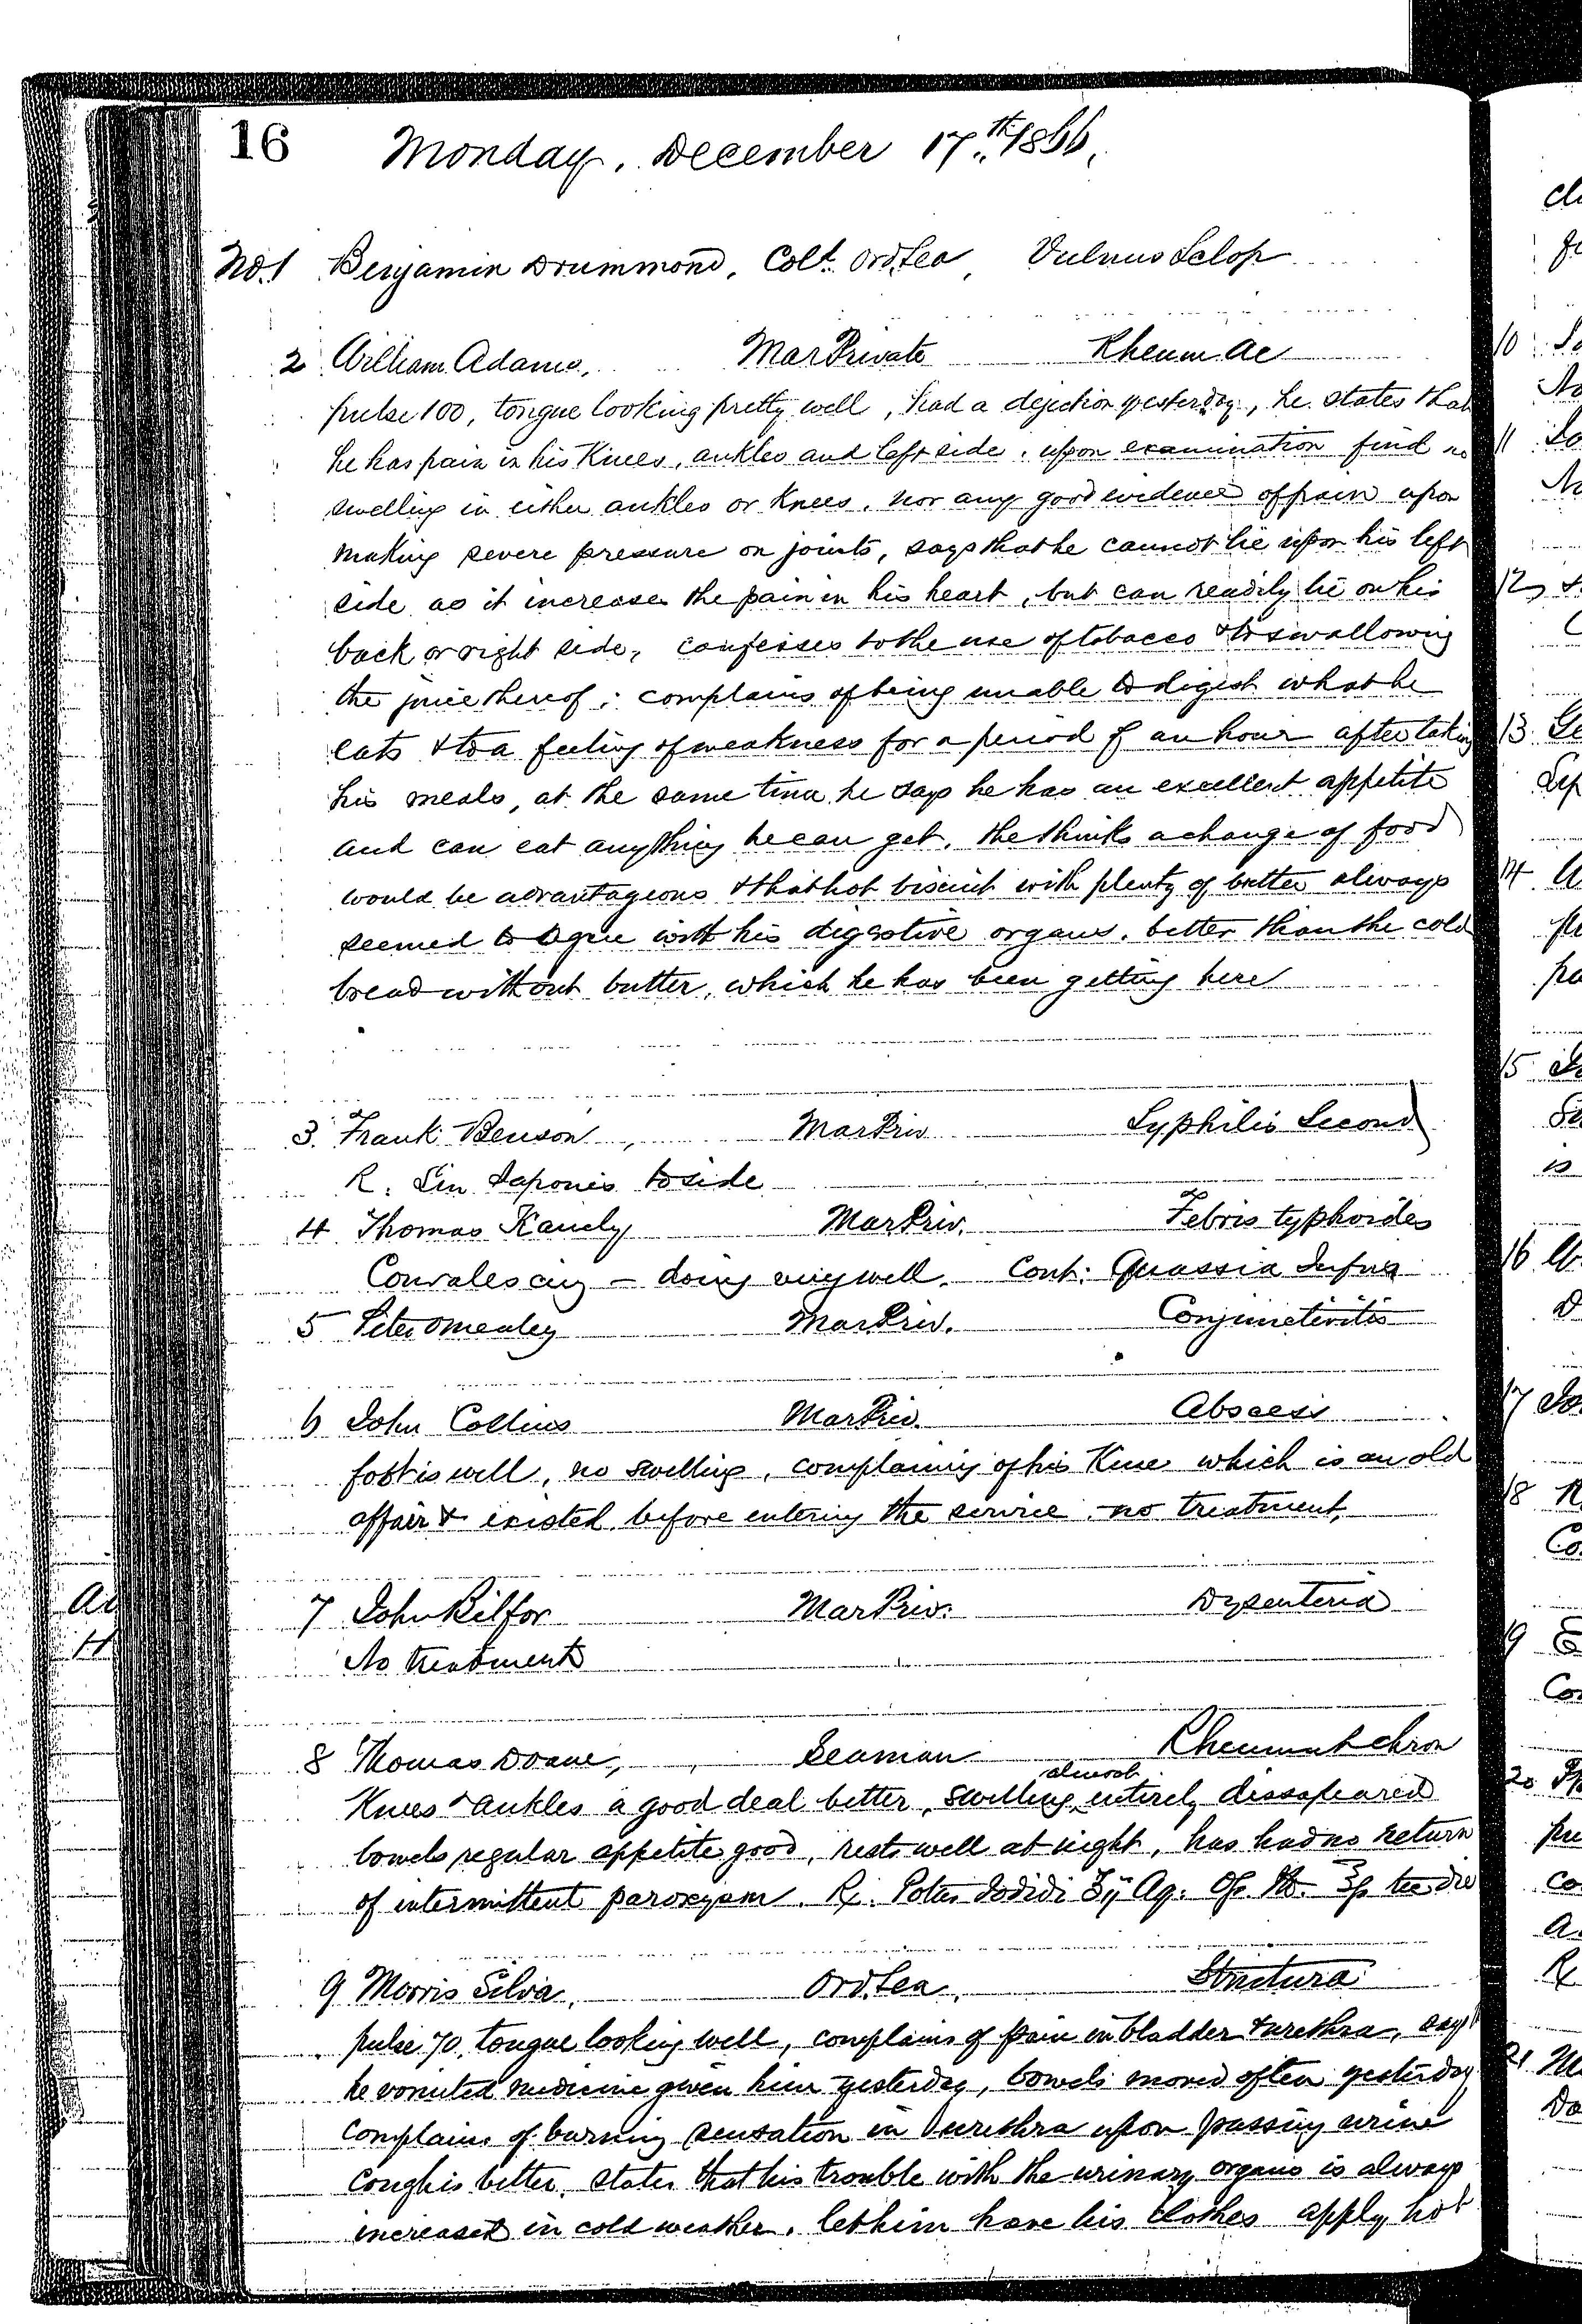 16 Monday, December 17th 1866.
No. 1 Benjamin Drummond, Cold. Ord. Sea, Vulnus Sclop
2 William Adams, Mar Private Rheum Ac
pulse 100, tongue looking pretty well, had a dejection yesterday, he states that
he has pain in his Knees, ankles and left side, upon examination find no
swelling in either ankles or Knees, nor any good evidence of pain upon
making severe pressure on joints, says that he cannot lie upon his left
side as it increases the pain in his heart, but can readily lie on his
back or right side, confesses to the use of tobacco & to swallowing
the juice thereof; complains of being unable to digest what he
eats & to a feeling of weakness for a period of an hour after taking
his meals, at the same time he says he has an excellent appetite
and can eat anything he can get. He thinks a change of food
would be advantageous & that hot biscuit with plenty of butter always
seemed to agree with his digestive organs, better than the cold
bread without butter, which he has been getting here
3. Frank Benson, Mar Priv Syphilis Second
R. Lin Saponis to side
4 Thomas Mar Priv. Febris typhoides
Convalescing – doing very well. Cont: Quassia Infus
5 Peter Omealey Mar Priv. Conjunctivitis
6 John Collins Mar Priv. Abscess
foot is well, no swelling, complaining of his Knee which is an old
affair & existed before entering the service. no treatment,
7 John Bilfor Mar Priv. Dysenteria
No treatment
8 Thomas Doane, Seaman Rheumat chron
Knees & ankles a good deal better, swelling almost entirely dissapeared
bowels regular appetite good, rests well at night, has had no return
of intermittent paroxysm. Rx. Potas Iodidi ʒij Aq. Oss. ter die
9 Morris Silva, Ord. Sea. Strictura
pulse 70, tongue looking well, complains of pain in bladder & urethra, says
he vomited medicine given him yesterday, bowels moved often yesterday
complains of burning sensation in urethra upon passing urine
cough is better, states that his trouble with the urinary organs is always
increased in cold weather. let him have his clothes apply hot
cl
10
No
11
No
12
13 Ge
Sep
14
pu
pa
15
is
16
D
17 Jo
18
Co
19
Co
20
pu
co
Rx
21
Do